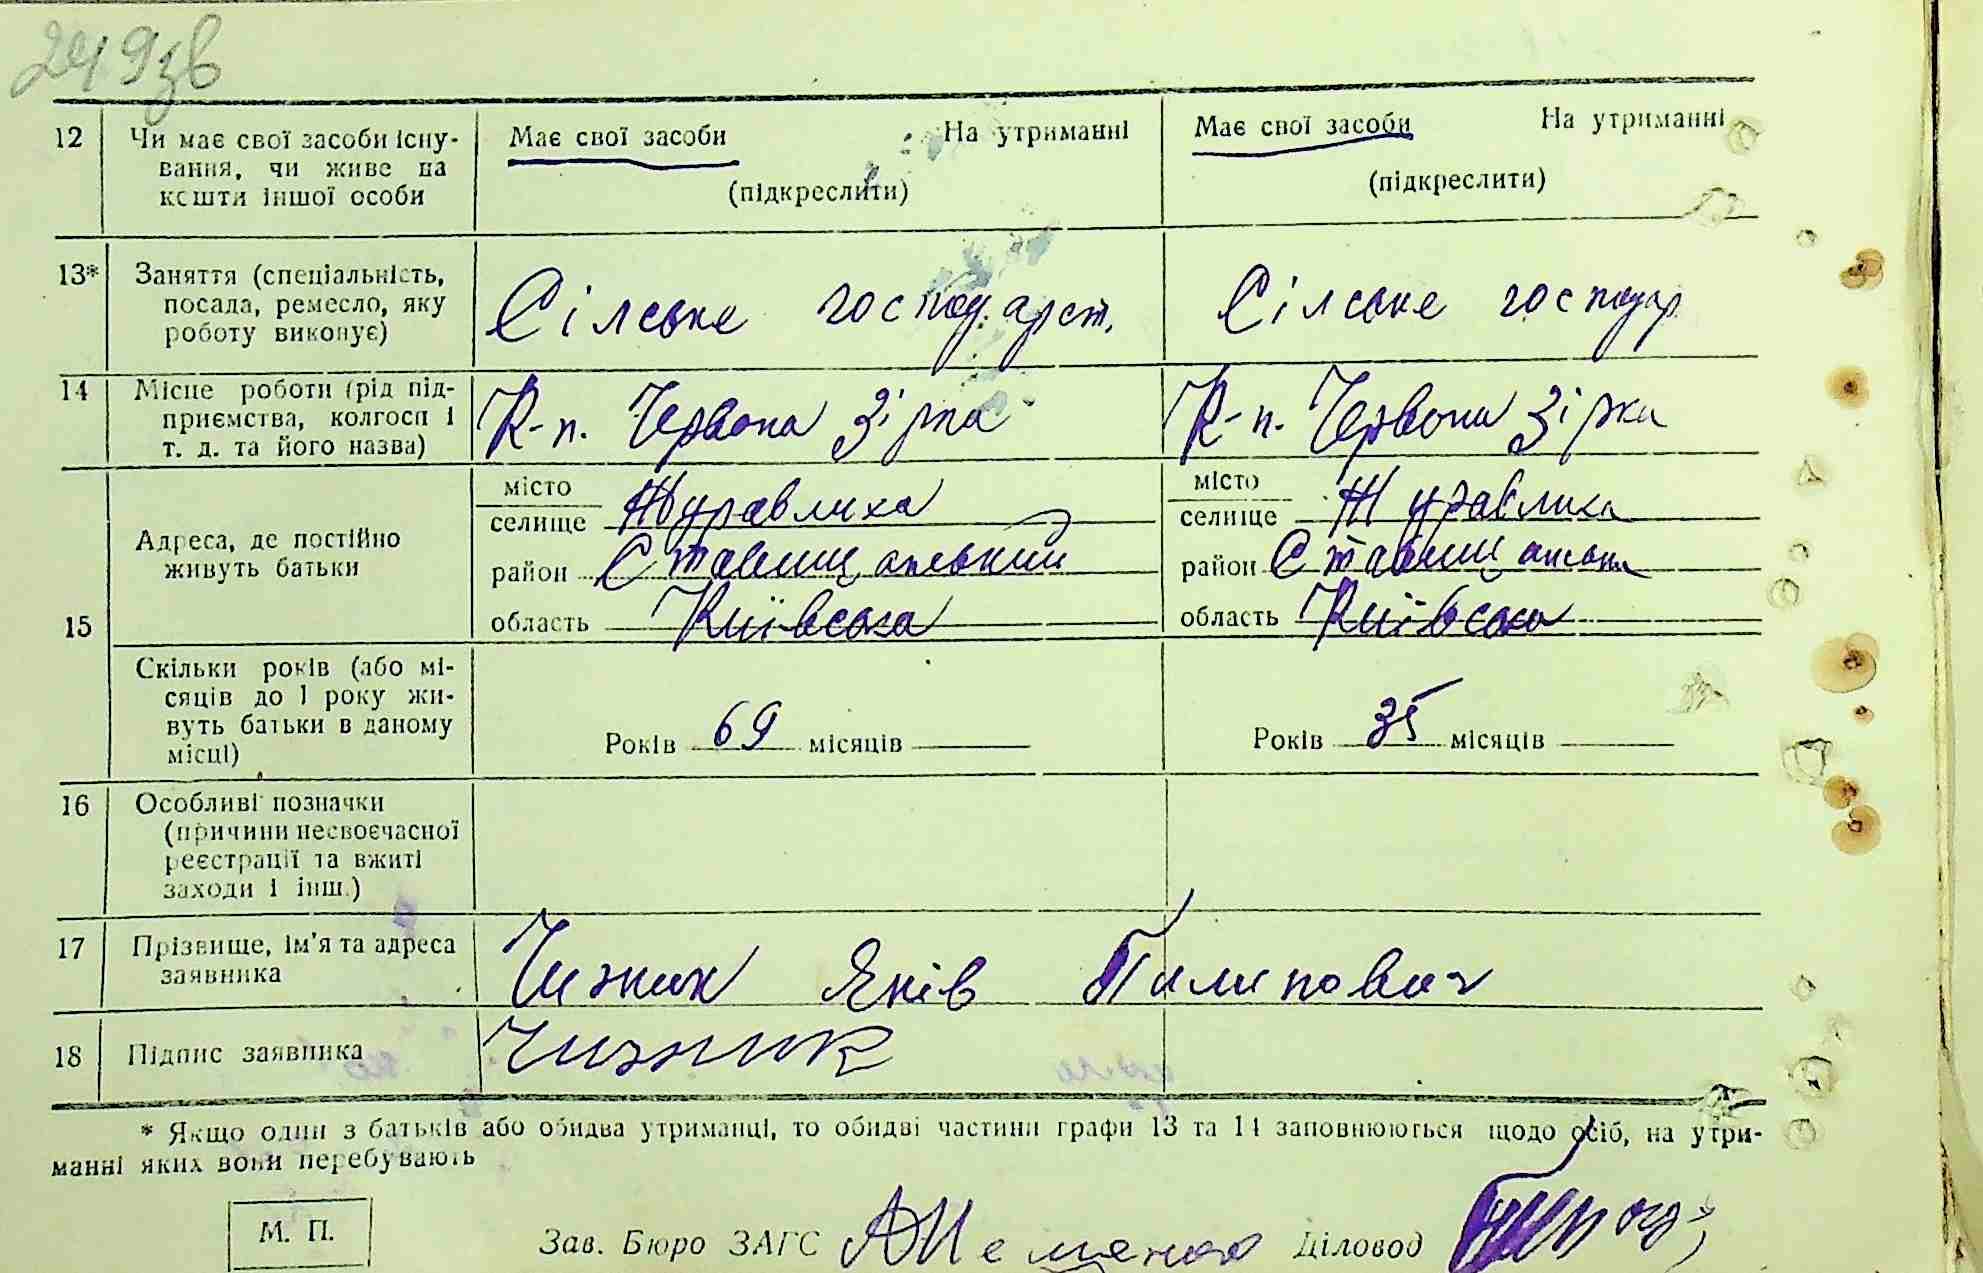 249зв
12 Чи має свої засоби існу- Має свої засоби На утриманні Має свої засоби На утриманні
вання, чи живе на
кошти іншої особи (підкреслити) (підкреслити)
13* Заняття (спеціальність,
посада, ремесло, яку Сілське господарст. Сілське господар
роботу виконує)
14 Місце роботи (рід під-
приємства, колгосп і К-п. Червона Зірка К-п. Червона Зірка
т. д. та його назва)
місто місто
селище Журавлиха селище Журавлиха
Адреса, де постійно
живуть батьки район Ставищанський район Ставищанськи
15 область Київська область Київська
Скільки років (або мі-
сяців до 1 року жи-
вуть батьки в даному
місці) Років 69 місяців Років 35 місяців
16 Особливі позначки
(причини несвоєчасної
реєстрації та вжиті
заходи і інш.)
17 Прізвище, ім'я та адреса
заявника Чизник Яків Пилипович
18 Підпис заявника Чизник
* Якщо один з батьків або обидва утриманці, то обидві частини графи 13 та 14 заповнюються щодо осіб, на утри-
манні яких вони перебувають
М. П.
Зав. Бюро ЗАГС Діловод